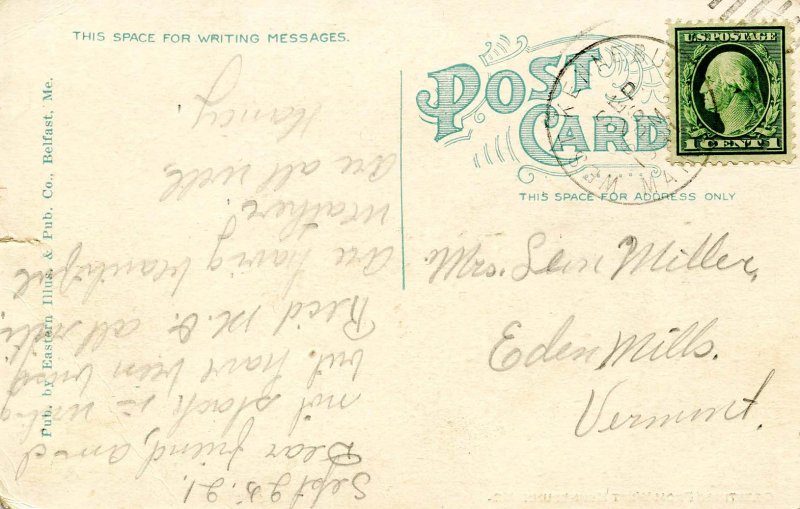 THIS SPACE FOR WRITING MESSAGES.
POST CARD
THIS SPACE FOR ADDRESS ONLY
U.S. POSTAGE
1 CENT 1
Pub. by Eastern Illus. & Pub. Co., Belfast, Me.
Mrs. Miller,
Eden Mills.
Vermont.
Sept 25. 21.
Dear friend, am
not slack in writing
but have been busy
Rec'd M.O. all right.
are having beautiful
weather.
are all well.
Nancy